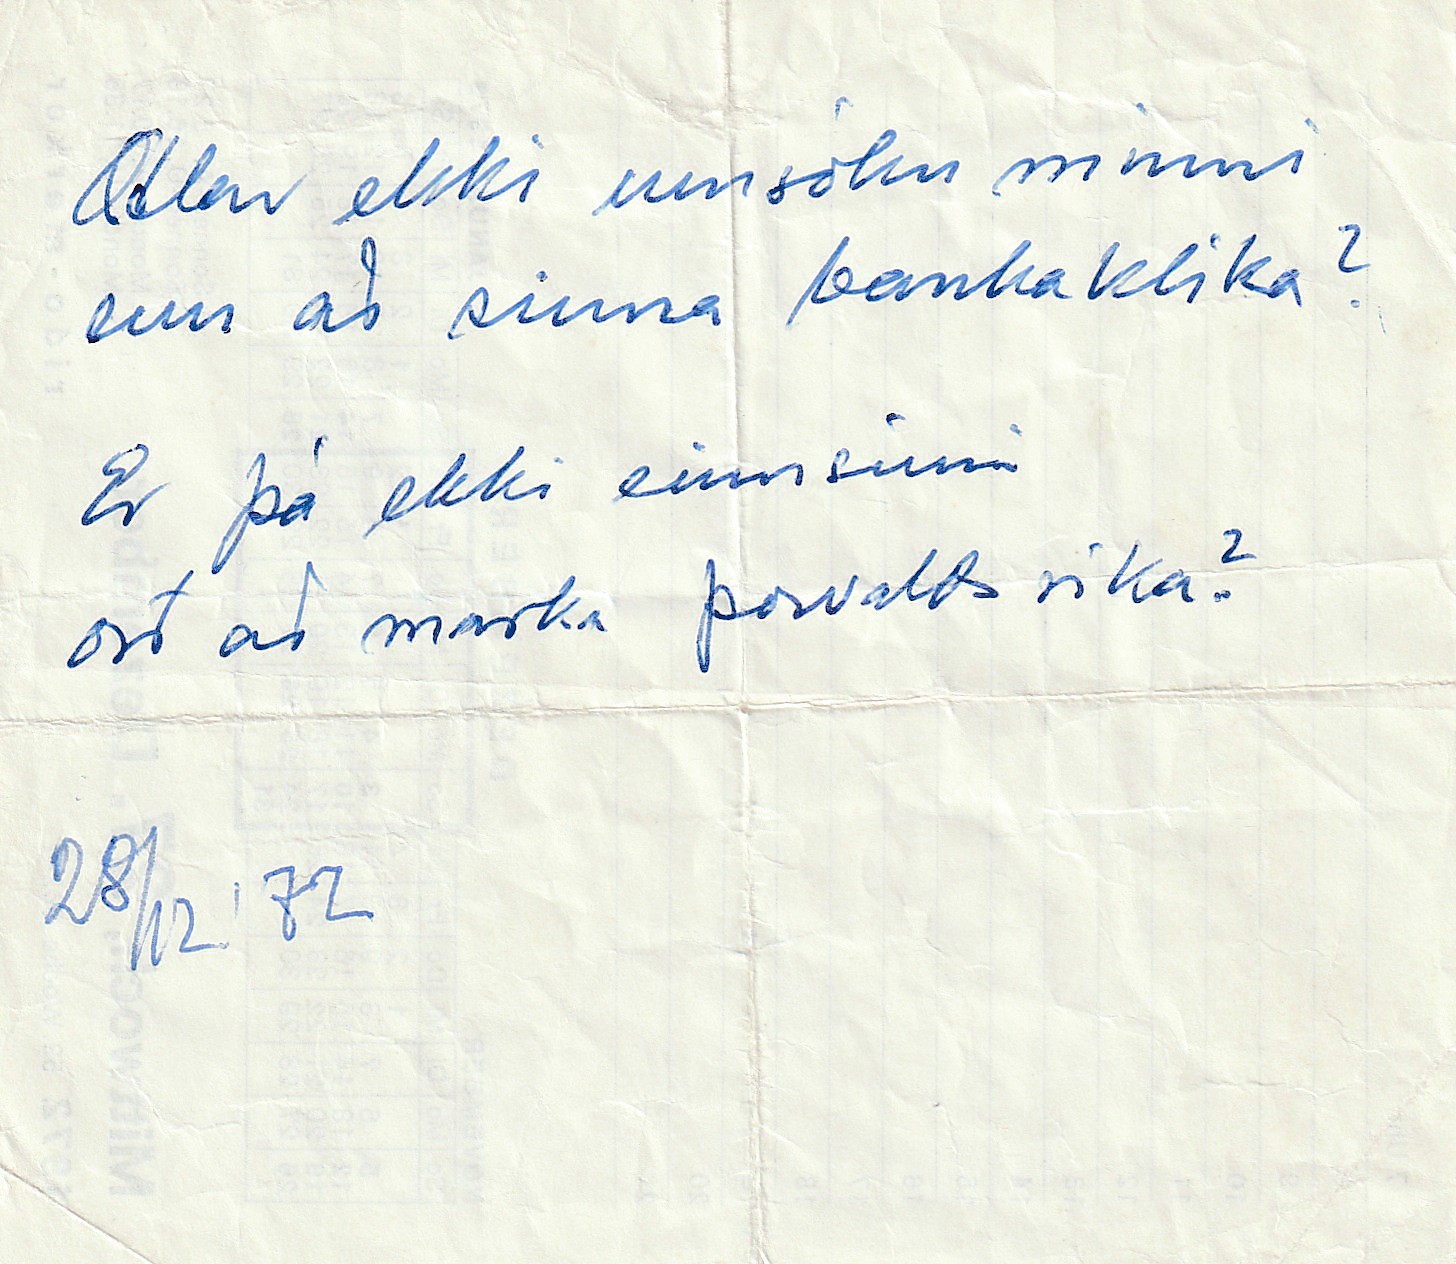 Ætlar ekki umsókn minni
enn að sinna bankaklika?
Er þá ekki einusinni
orð að marka þorvalds rika?
28/12 '72